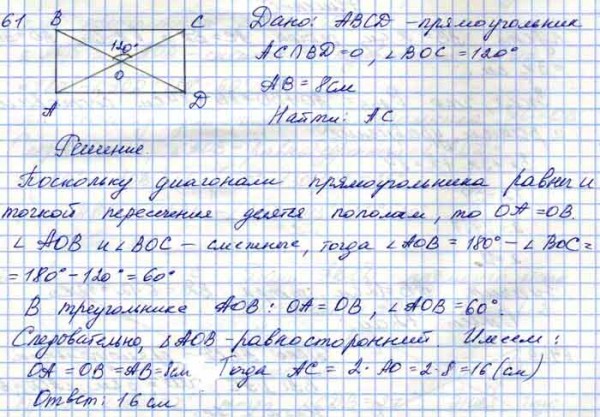 61 B C Дано: ABCD - прямоугольник
120° AC∩BD=O, ∠BOC=120°
O AB = 8см
A D Найти: AC
Решение.
Поскольку диагонали прямоугольника равны и
точкой пересечения делятся пополам, то OA=OB.
∠AOB и ∠BOC - смежные, тогда ∠AOB = 180° - ∠BOC =
= 180° - 120° = 60°
В треугольнике AOB: OA = OB, ∠AOB = 60°.
Следовательно, ∆AOB - равносторонний. Имеем:
OA = OB = AB = 8см Тогда AC = 2·AO = 2·8 = 16 (см)
Ответ: 16 см